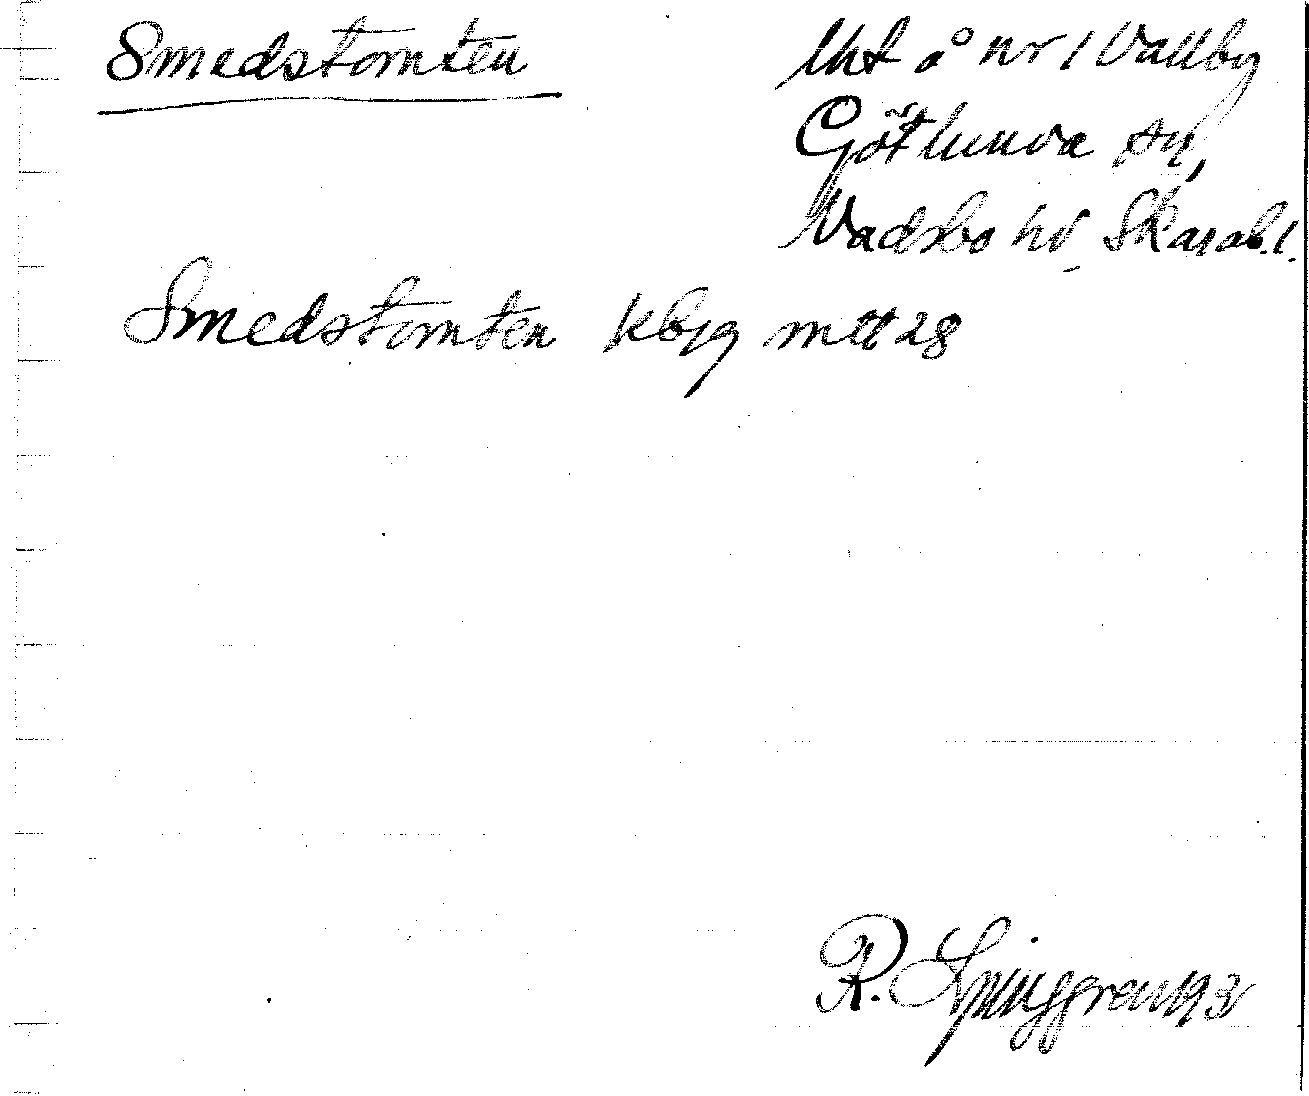 Smedstomten
Uht å nr 1 Vallby
Götlunda sn,
Vadsbo hd, Skarab.l.
Smedstomten kbjg mtt 28
R. Ljunggren 193